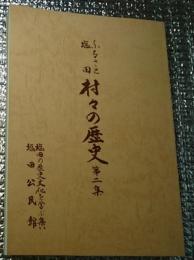 ふるさと
塩田
村々の歴史 第二集
塩田の歴史文化を学ぶ集い
塩田公民館